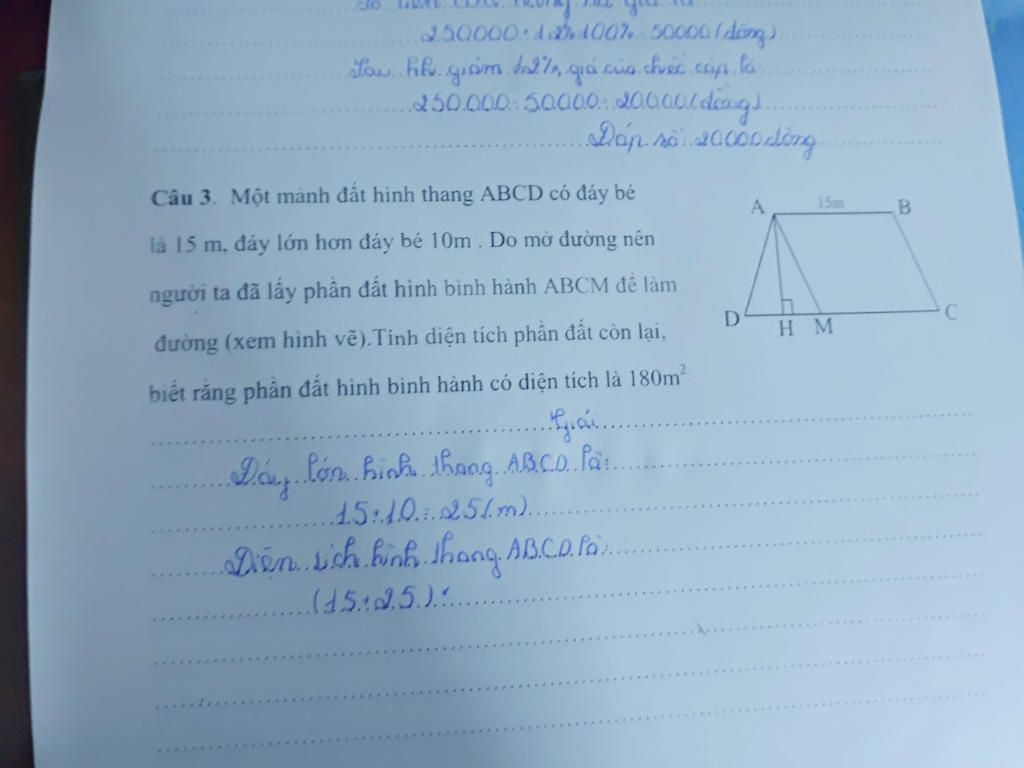 250000:12%100%:50000(đồng)
Sau khi giảm 12%, giá của chiếc cặp là
250.000-50.000=20.000(đồng)
Đáp số: 20000 đồng
Câu 3. Một mảnh đất hình thang ABCD có đáy bé
là 15 m, đáy lớn hơn đáy bé 10m . Do mở đường nên
người ta đã lấy phần đất hình bình hành ABCM để làm
đường (xem hình vẽ).Tính diện tích phần đất còn lại,
biết rằng phần đất hình bình hành có diện tích là 180m²
A 15m B
D H M C
Giải
Đáy lớn hình thang ABCD là:
15+10=25(m)
Diện tích hình thang ABCD là:
(15+25)×